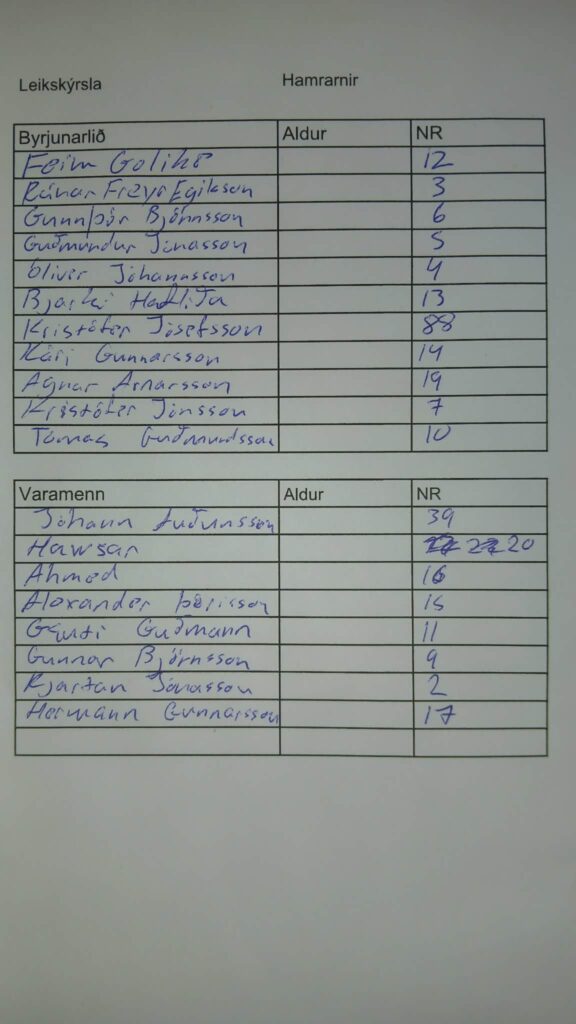 Leikskýrsla Hamrarnir
Byrjunarlið Aldur NR
Feim Goliko 12
Rúnar Freyr Egilsson 3
Gunnþór Björnsson 6
Guðmundur Jónasson 5
Oliver Jóhannsson 4
Bjarki Hafliða 13
Kristófer Jósefsson 88
Kári Gunnarsson 14
Agnar Arnarsson 19
Kristófer Jónsson 7
Tómas Guðmundsson 10
Varamenn Aldur NR
Jóhann Auðunsson 39
Hawsar 20
Ahmed 16
Alexander Þórisson 15
Guðmann 11
Gunnar Björnsson 9
Kjartan Jónasson 2
Hermann Gunnarsson 17